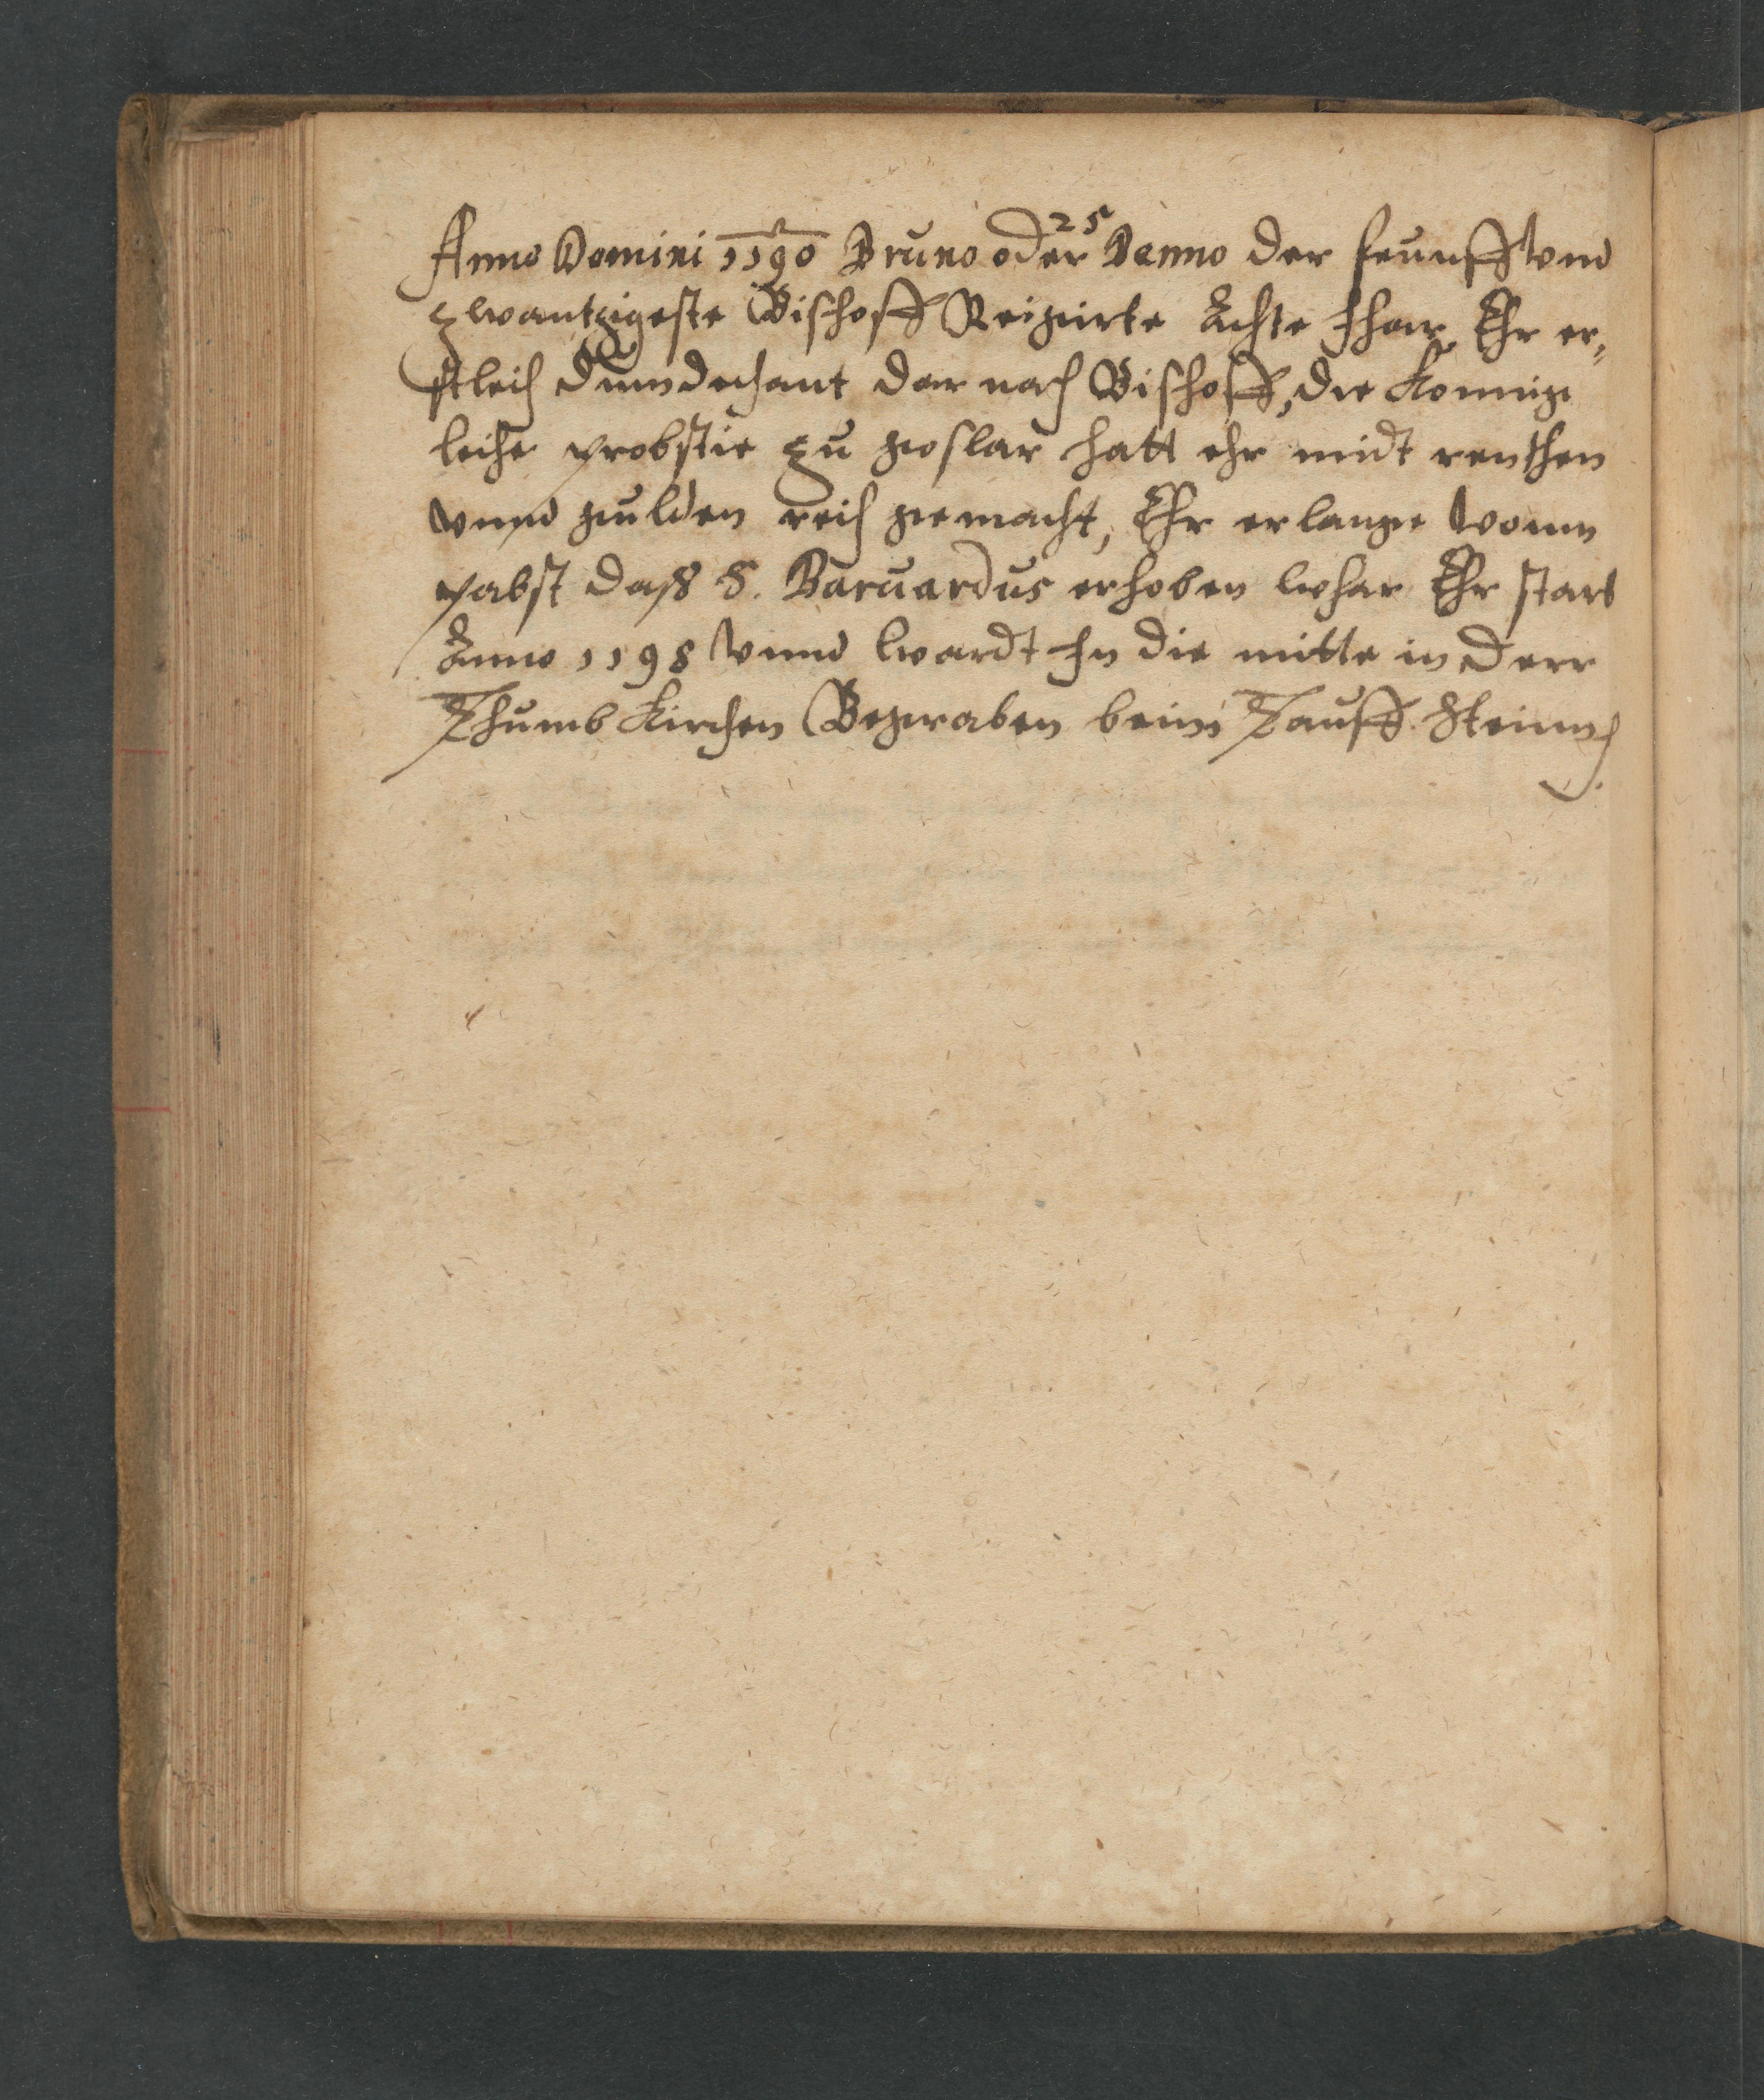 25
Anno Domini 1190 Bruno oder Benno der feunffvnd
zwantzigeste Bischoff Reigirte Achte Jhar Ehr er„
stleich dumdechant dar nach Bischoff, die Konnig
leiche probstie zu goslar hatt ehr midt renthen
vnnd gulden reich gemacht, Ehr erlange vonn
pabst daß S. Baruardus erhoben whar Ehr starb
Anno 1198 vnnd wardt In die mitte in derr
Thumb Kirchen Begraben beim Tauff Steinn.